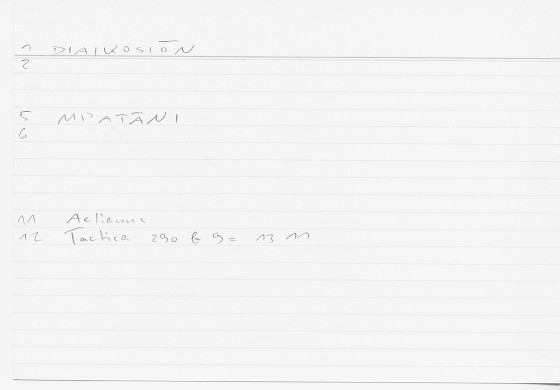 1 DIAIKOSIŌN
2
5 MPATĀNI
6
11 Aelianus
12 Tactica 290 b 9 = 13 11